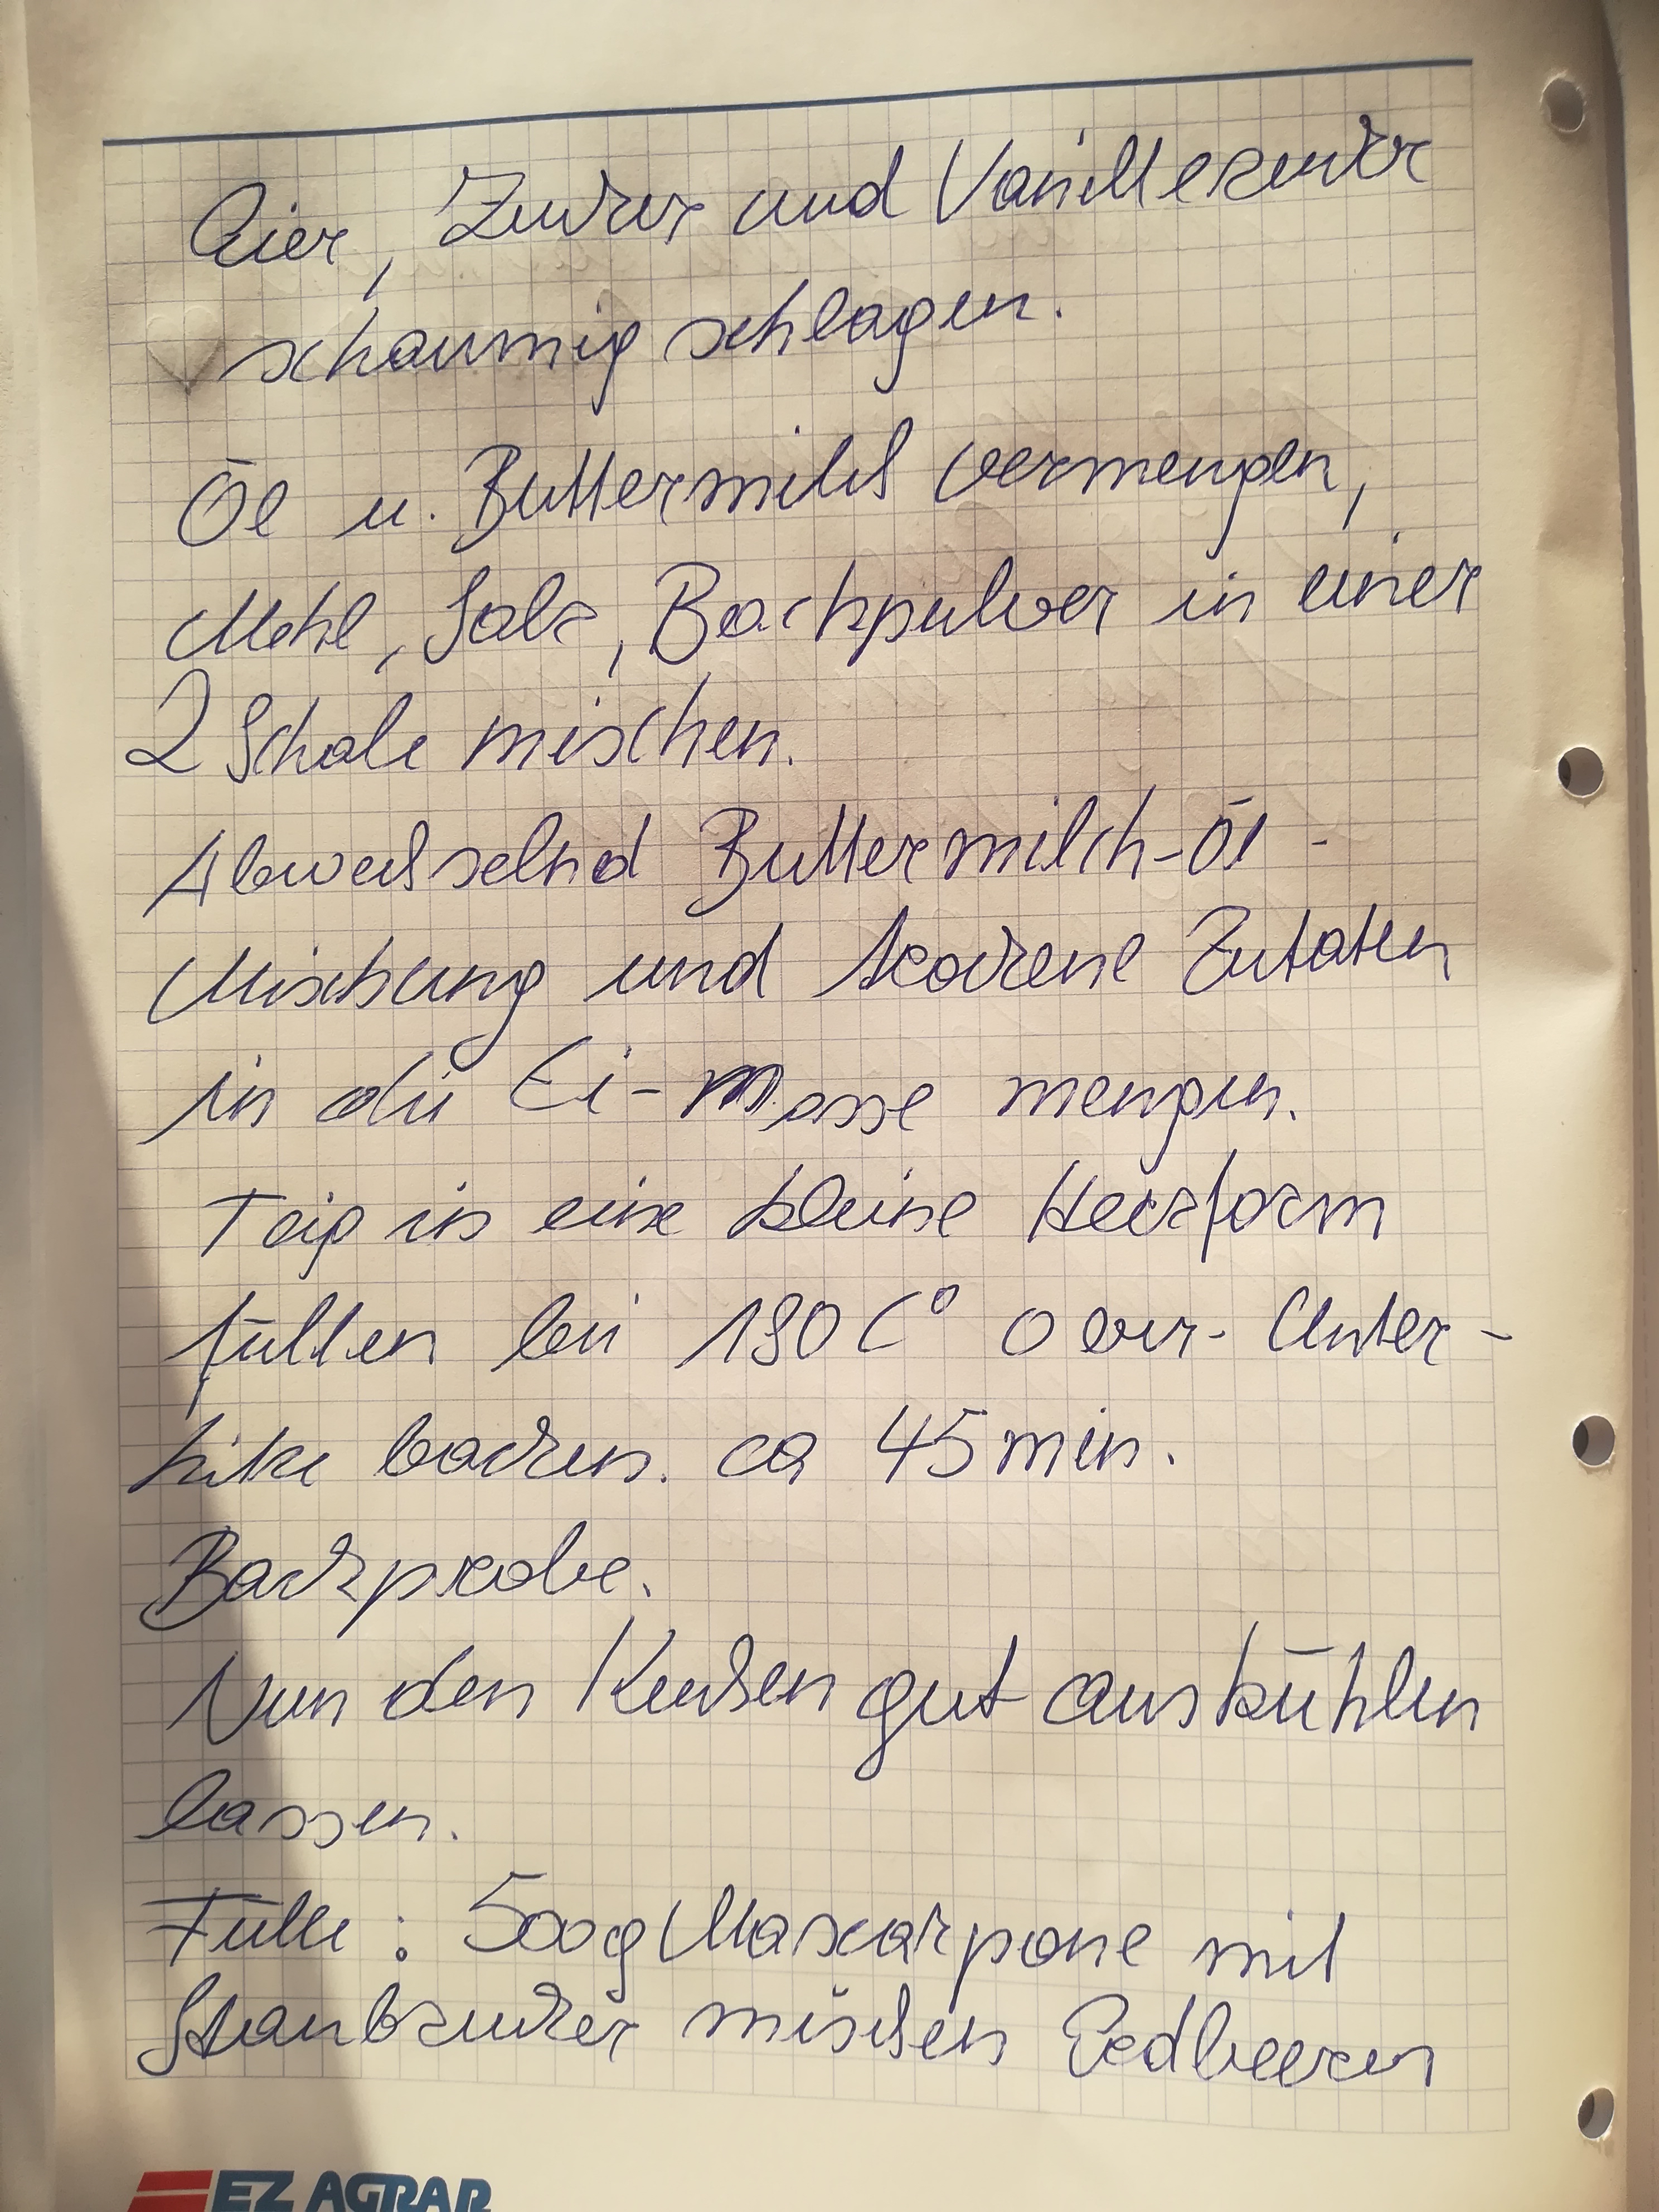 Eier, Zucker und Vanillezucker
schaumig schlagen.
Öl u. Buttermilch vermengen,
Mehl, Salz, Backpulver in einer
2 Schale mischen.
Abwechselnd Buttermilch-Öl-
Mischung und trockene Zutaten
in die Ei-Masse mengen.
Teig in eine kleine Herzform
füllen bei 180 C° Ober- Unter-
hitze backen. ca 45 min.
Backprobe.
Nun den Kuchen gut auskühlen
lassen.
Fülle: 500g Mascarpone mit
Staubzucker mischen Erdbeeren
EZ AGRAR